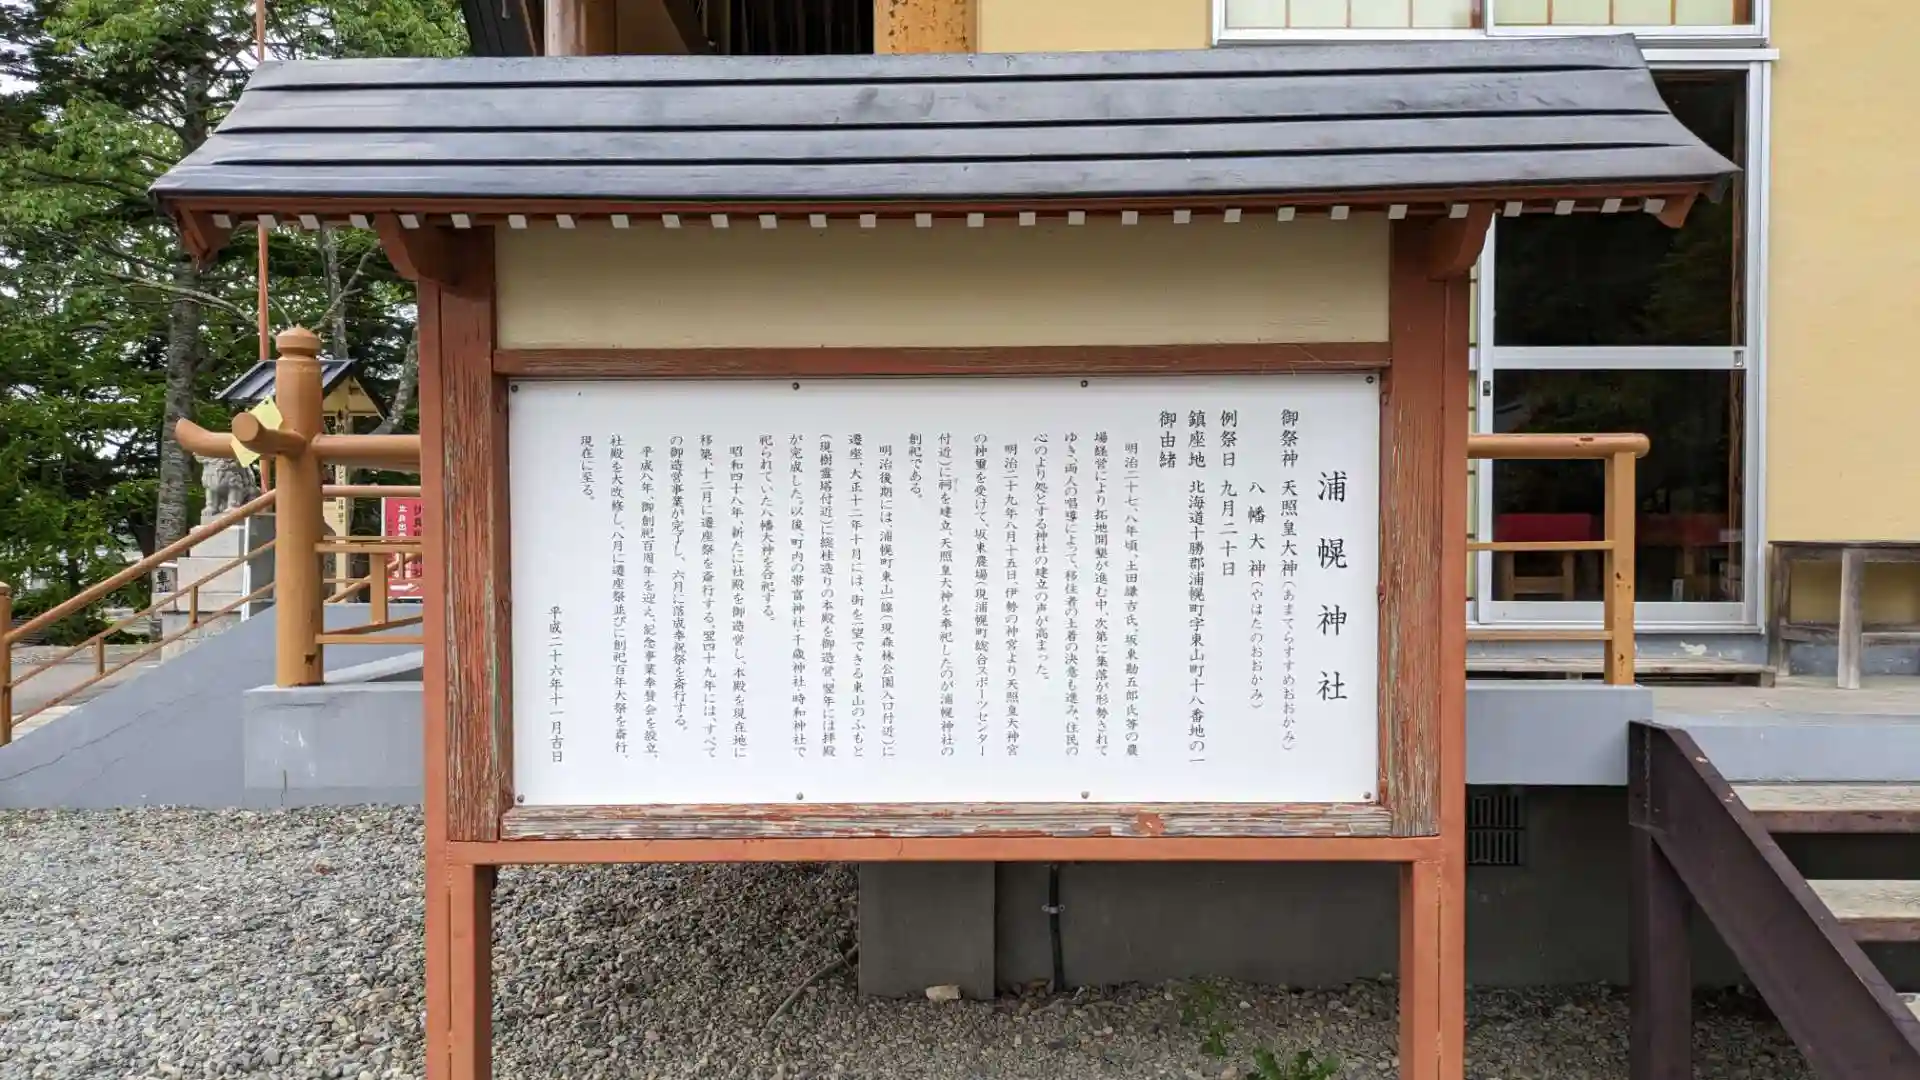 浦幌神社
御祭神 天照皇大神(あまてらすすめおおかみ)
八幡大神(やはたのおおかみ)
例祭日 九月二十日
鎮座地 北海道十勝郡浦幌町字東山町十八番地の一
御由緒
明治二十七、八年頃、土田謙吉氏、坂東勘五郎氏等の農
場経営により拓地開墾が進む中、次第に集落が形勢されて
ゆき、両人の唱導によって、移住者の土着の決意も進み、住民の
心のより処とする神社の建立の声が高まった。
明治二十九年八月十五日、伊勢の神宮より天照皇大神宮
の神璽を受けて、坂東農場(現浦幌町総合スポーツセンター
付近)に祠を建立、天照皇大神を奉祀したのが浦幌神社の
創祀である。
明治後期には、浦幌町東山一線(現森林公園入口付近)に
遷座、大正十二年十月には、街を一望できる東山のふもと
(現樹霊塔付近)に総桂造りの本殿を御造営、翌年には拝殿
が完成した。以後、町内の帯富神社・千歳神社・時和神社で
祀られていた八幡大神を合祀する。
昭和四十八年、新たに社殿を御造営し、本殿を現在地に
移築、十二月に遷座祭を斎行する。翌四十九年には、すべて
の御造営事業が完了し、六月に落成奉祝祭を斎行する。
平成八年、御創祀百周年を迎え、記念事業奉賛会を設立、
社殿を大改修し、八月に遷座祭並びに創祀百年大祭を斎行、
現在に至る。
平成二十六年十一月吉日